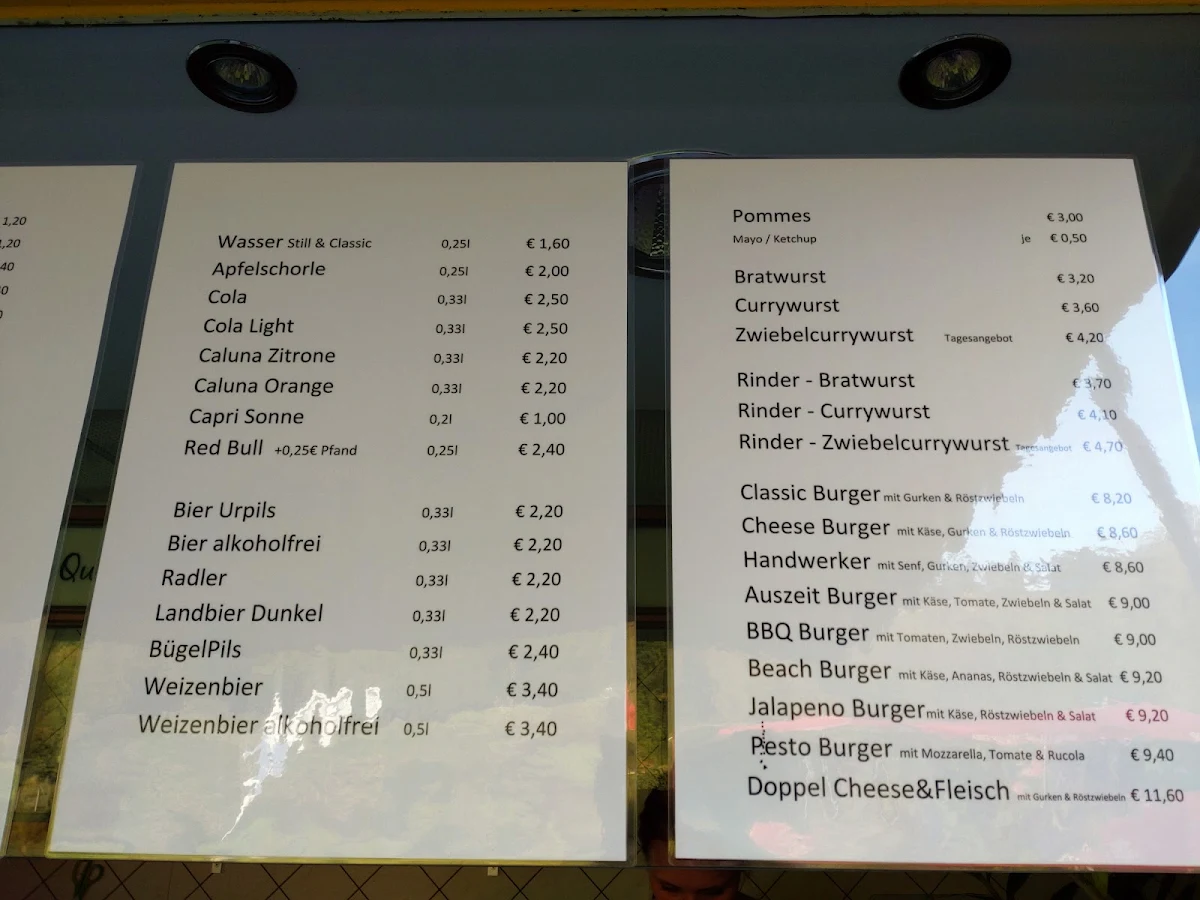 1,20
1,20
40
0
Qu
Wasser Still & Classic 0,25l € 1,60
Apfelschorle 0,25l € 2,00
Cola 0,33l € 2,50
Cola Light 0,33l € 2,50
Caluna Zitrone 0,33l € 2,20
Caluna Orange 0,33l € 2,20
Capri Sonne 0,2l € 1,00
Red Bull +0,25€ Pfand 0,25l € 2,40
Bier Urpils 0,33l € 2,20
Bier alkoholfrei 0,33l € 2,20
Radler 0,33l € 2,20
Landbier Dunkel 0,33l € 2,20
BügelPils 0,33l € 2,40
Weizenbier 0,5l € 3,40
Weizenbier alkoholfrei 0,5l € 3,40
Pommes € 3,00
Mayo / Ketchup je € 0,50
Bratwurst € 3,20
Currywurst € 3,60
Zwiebelcurrywurst Tagesangebot € 4,20
Rinder - Bratwurst € 3,70
Rinder - Currywurst € 4,10
Rinder - Zwiebelcurrywurst Tagesangebot € 4,70
Classic Burger mit Gurken & Röstzwiebeln € 8,20
Cheese Burger mit Käse, Gurken & Röstzwiebeln € 8,60
Handwerker mit Senf, Gurken, Zwiebeln & Salat € 8,60
Auszeit Burger mit Käse, Tomate, Zwiebeln & Salat € 9,00
BBQ Burger mit Tomaten, Zwiebeln, Röstzwiebeln € 9,00
Beach Burger mit Käse, Ananas, Röstzwiebeln & Salat € 9,20
Jalapeno Burger mit Käse, Röstzwiebeln & Salat € 9,20
Pesto Burger mit Mozzarella, Tomate & Rucola € 9,40
Doppel Cheese&Fleisch mit Gurken & Röstzwiebeln € 11,60